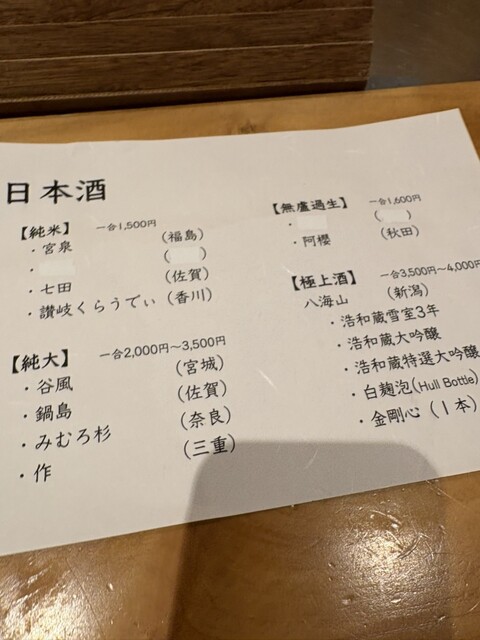 日本酒
【純米】 一合1,500円
・宮泉 (福島)
・ ( )
・七田 (佐賀)
・讃岐くらうでぃ (香川)
【純大】 一合2,000円～3,500円
・谷風 (宮城)
・鍋島 (佐賀)
・みむろ杉 (奈良)
・作 (三重)
【無盧過生】 一合1,600円
・ ( )
・阿櫻 (秋田)
【極上酒】 一合3,500円～4,000円
八海山 (新潟)
・浩和蔵雪室3年
・浩和蔵大吟醸
・浩和蔵特選大吟醸
・白麹泡(Hull Bottle)
・金剛心(1本)